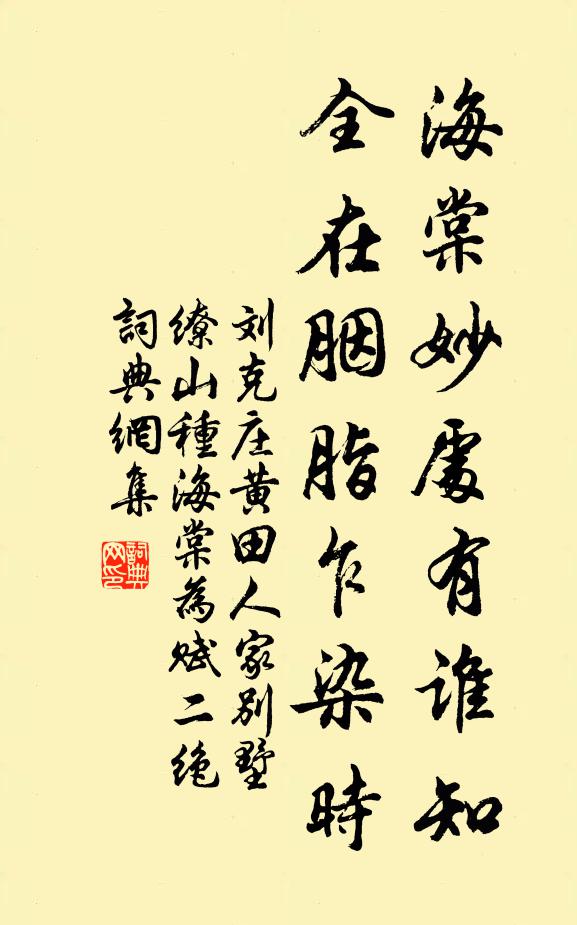 海棠妙處有誰知
全在胭脂乍染時
刘克庄黄田人家别墅
缭山種海棠為赋二绝
詞典網集
詞典网印